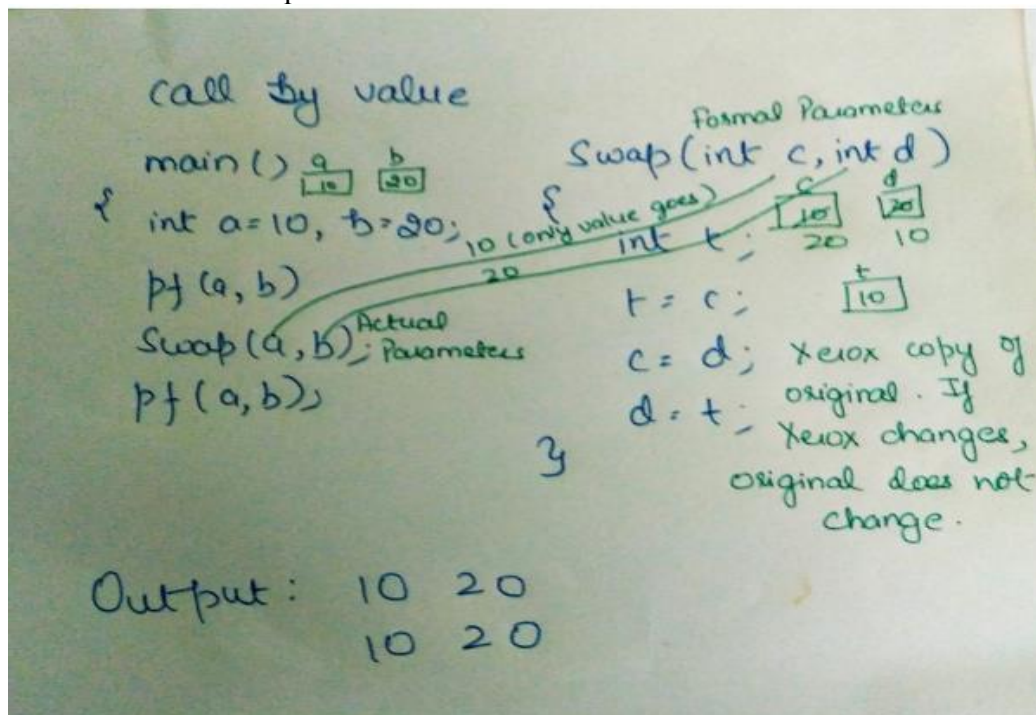 call by value
main()
a b
10 20
{
int a=10, b=20;
pf (a, b)
Swap (a, b); Actual
Parameters
pf (a, b);
10 (only value goes)
20
Formal Parameters
Swap (int c, int d)
{
c d
10 20
int t; 20 10
t
t = c; 10
c = d; Xerox copy of
d = t; original. If
Xerox changes,
} original does not
change.
Output: 10 20
10 20